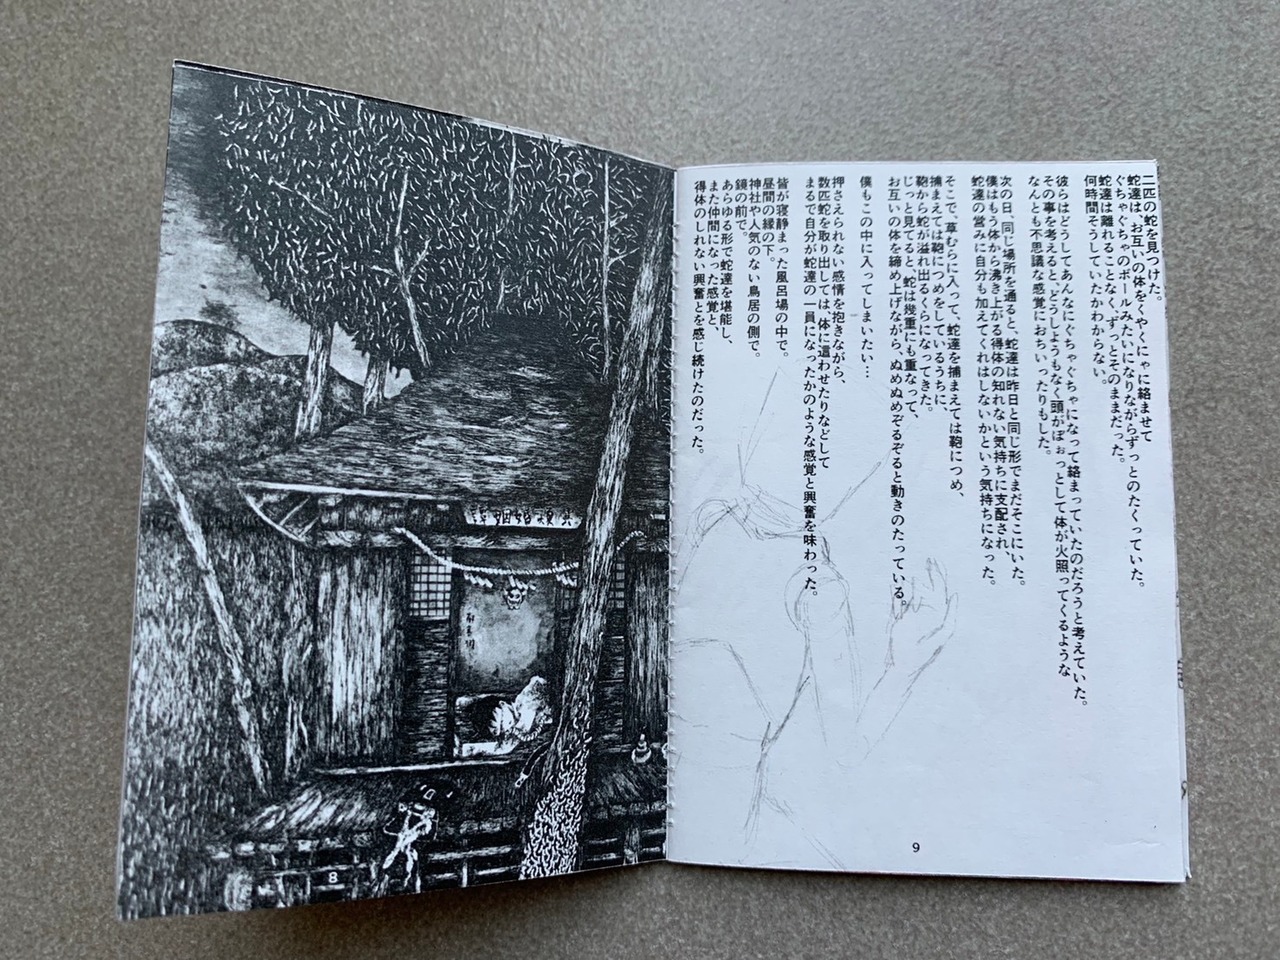 二匹の蛇を見つけた。
蛇達は、お互いの体をくやくにゃに絡ませて
ぐちゃぐちゃのボールみたいになりながらずっとのたくっていた。
蛇達は離れることなく、ずっとそのままだった。
何時間そうしていたかわからない。
彼らはどうしてあんなにぐちゃぐちゃになって絡まっていたのだろうと考えていた。
その事を考えると、どうしようもなく頭がぽぉっとして体が火照ってくるような
なんとも不思議な感覚におちいったりもした。
次の日、同じ場所を通ると、蛇達は昨日と同じ形でまだそこにいた。
僕はもう体から沸き上がる得体の知れない気持ちに支配され、
蛇達の営みに自分も加えてくれはしないかという気持ちになった。
そこで、草むらに入って、蛇達を捕まえては鞄につめ、
捕まえては鞄につめをしているうちに、
鞄から蛇が溢れ出るくらになってきた。
じっと見てると、蛇は幾重にも重なって、
お互いの体を締め上げながら、ぬめぬめぞるぞると動きのたっている。
僕もこの中に入ってしまいたい…
押さえられない感情を抱きながら、
数匹蛇を取り出しては、体に這わせたりなどして
まるで自分が蛇達の一員になったかのような感覚と興奮を味わった。
皆が寝静まった風呂場の中で。
昼間の縁の下。
神社や人気のない鳥居の側で。
鏡の前で。
あらゆる形で蛇達を堪能し、
また仲間になった感覚と、
得体のしれない興奮とを感じ続けたのだった。
8
9